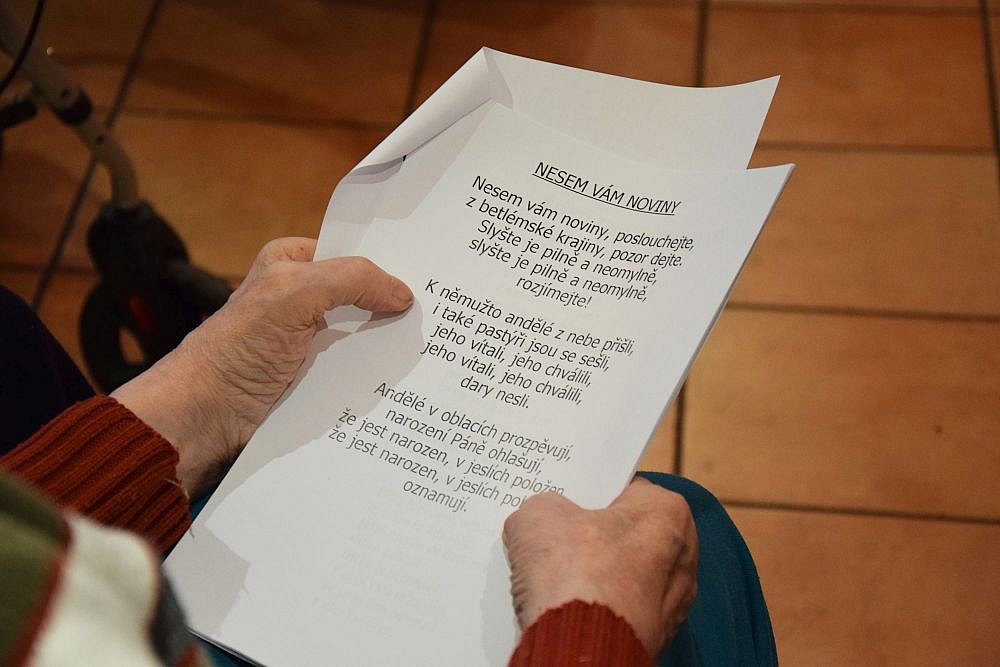 NESEM VÁM NOVINY
Nesem vám noviny, poslouchejte,
z betlémské krajiny, pozor dejte.
Slyšte je pilně a neomylně,
slyšte je pilně a neomylně,
rozjímejte!
K němužto andělé z nebe přišli,
i také pastýři jsou se sešli,
jeho vítali, jeho chválili,
jeho vítali, jeho chválili,
dary nesli.
Andělé v oblacích prozpěvují,
narození Páně ohlašují,
že jest narozen, v jeslích položen,
že jest narozen, v jeslích
oznamují.